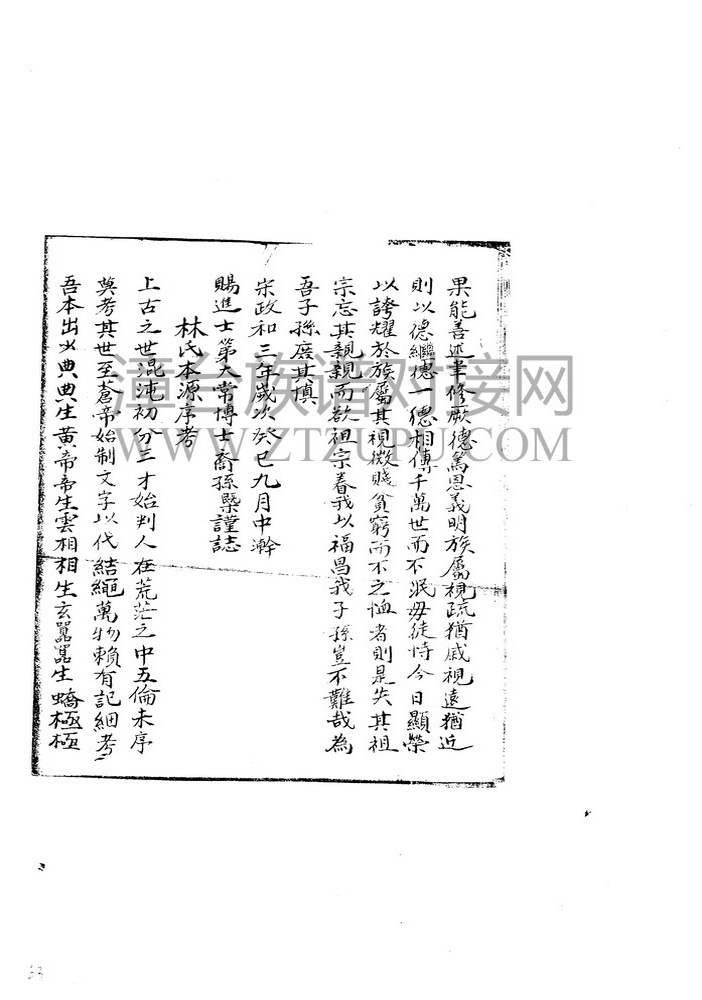 果能善述聿修厥德篤恩義明族屬視疏猶戚視遠猶近
則以德繼德一德相傳千萬世而不泯毋徒恃今日顯榮
以誇耀於族屬其視微賤貧窮而不之恤者則是失其祖
宗忘其親親而欲祖宗眷我以福昌我子孫豈不難哉為
吾子孫庶其慎
宋政和三年歲次癸巳九月中澣
賜進士第大常博士裔孫槩謹誌
林氏本源序考
上古之世混沌初分三才始判人在荒茫之中五倫未序
莫考其世至蒼帝始制文字以代結繩萬物賴有記細考
吾本出少典典生黃帝帝生雲相相生玄囂囂生蟜極極
潭台族谱对接网
WWW.ZTZUPU.COM